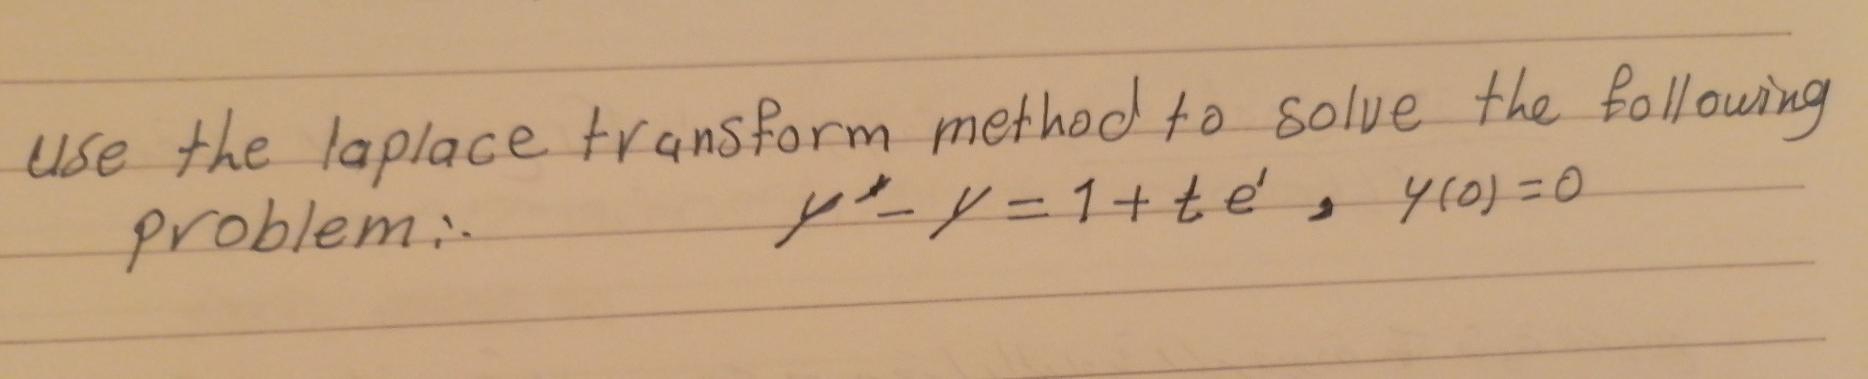 use the laplace transform method to solve the following
problem:. y' - y = 1 + t e' , y(0) = 0